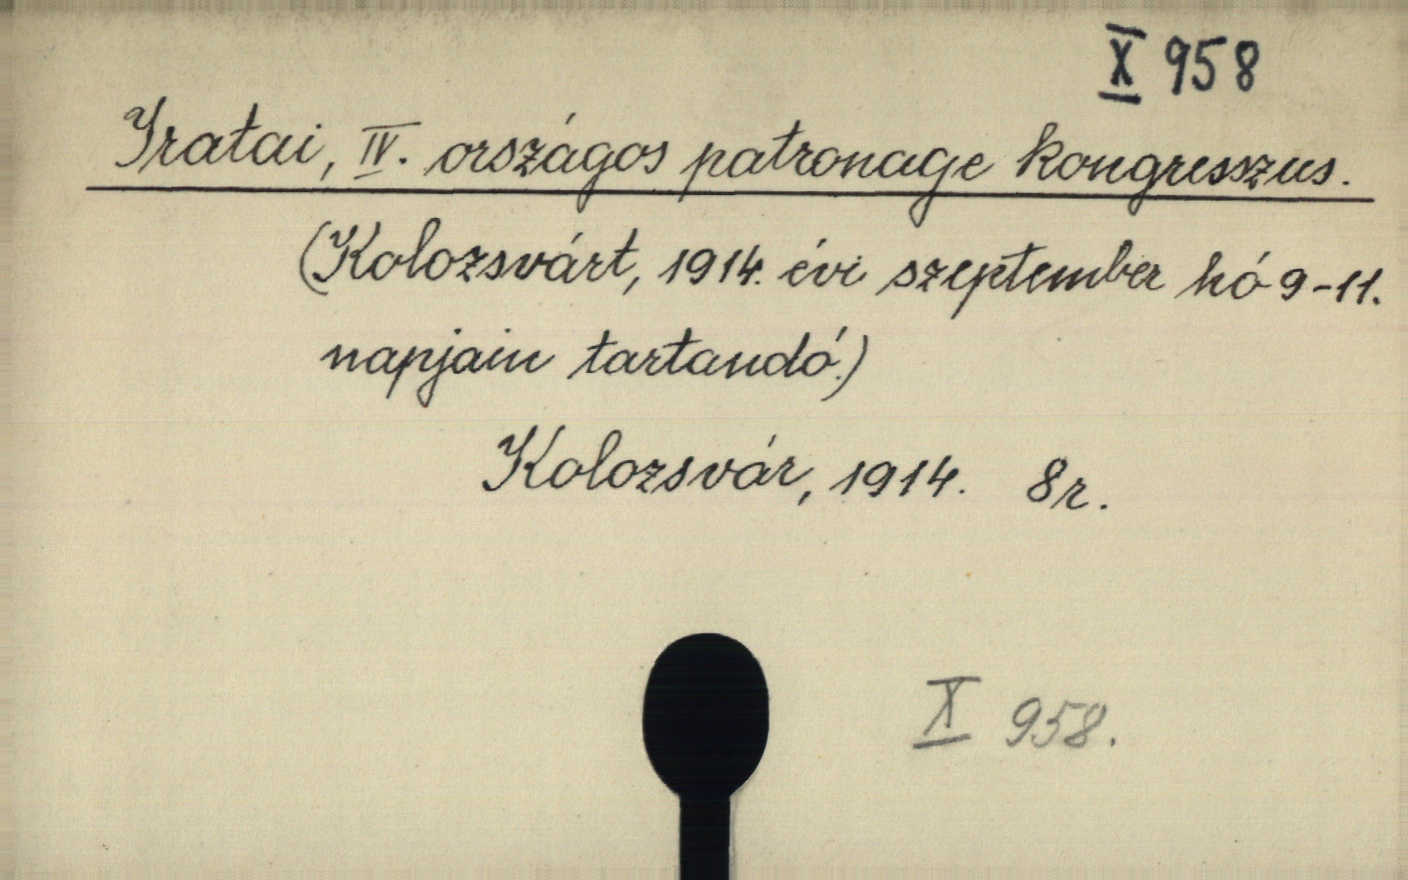 X 958
Iratai, IV. országos patronage kongresszus.
(Kolozsvárt, 1914. évi szeptember hó 9-11.
napjain tartandó.)
Kolozsvár, 1914. 8r.
X 958.